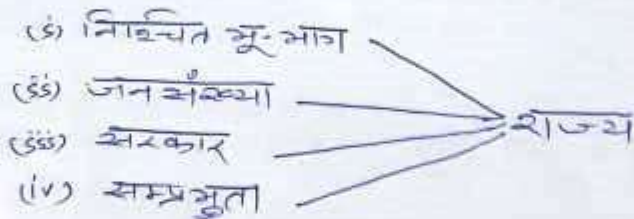 (i) निश्चित भू-भाग
(ii) जनसंख्या
(iii) सरकार
राज्य
(iv) सम्प्रभुता